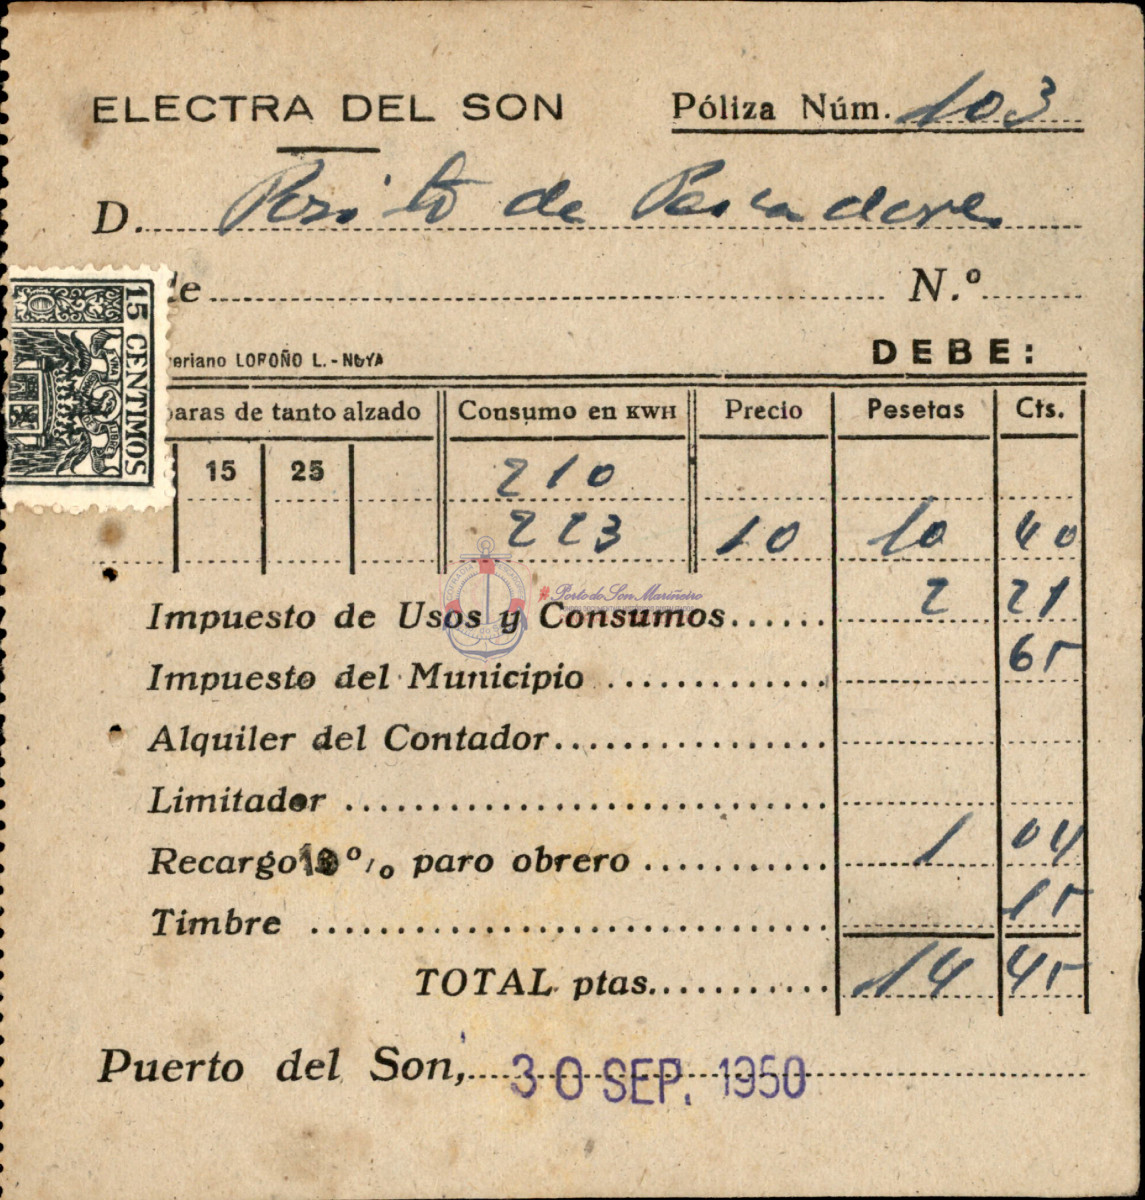 ELECTRA DEL SON Póliza Núm. 103
D. Posito de Pescadores
N.º
15 CENTIMOS
LOROÑO L. - NOYA DEBE:
de tanto alzado Consumo en KWH Precio Pesetas Cts.
15 25 210
223 10 10 40
Porto do Son Mariñeiro
Impuesto de Usos y Consumos...... 2 21
Impuesto del Municipio ............. 65
Alquiler del Contador................
Limitador ............................
Recargo 10 % paro obrero ........... 1 04
Timbre .............................. 15
TOTAL ptas........... 14 45
Puerto del Son, 30 SEP. 1950